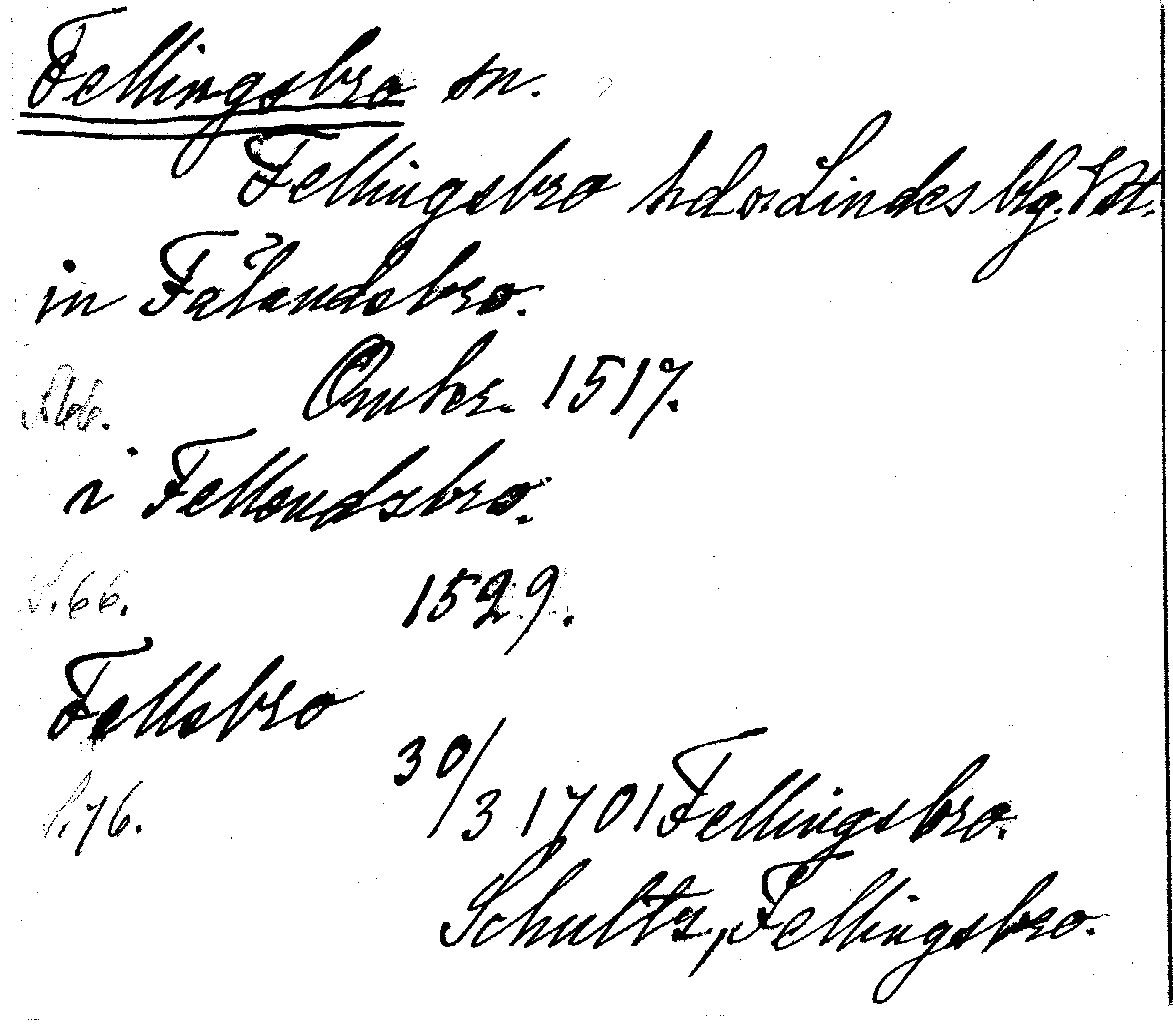 Fellingsbro sn.
Fellingsbro hd o. Lindes blg. Vstm.
in Fålandsbro.
Örebro 1517.
S. 66.
i Fellendsbro.
S. 66. 1529.
Fellsbro
30/3 1701 Fellingsbro.
S. 76.
Schultz, Fellingsbro.